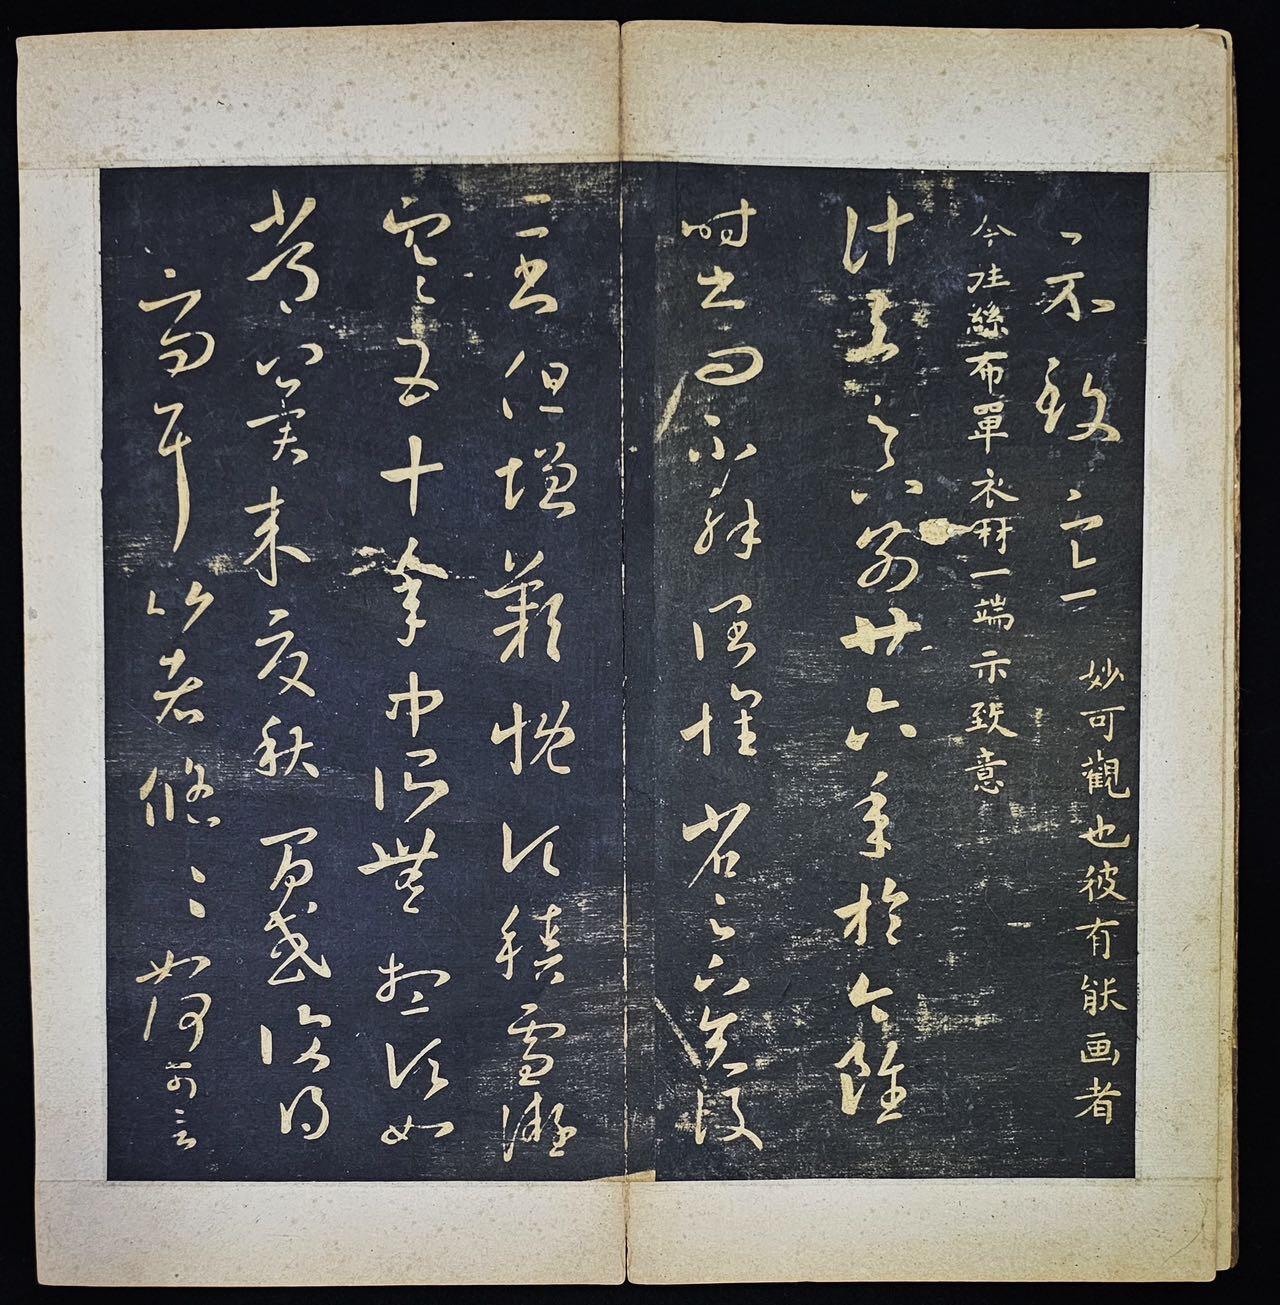 示致意
妙可觀也彼有能画者
今往絲布單衣財一端示致意
計與足下別廿六年於今雖
時書問不解闊懷省足下先後
二書但增歎慨頃積雪凝
寒五十年中所無想頃如
常冀來夏秋間或復得
足下問耳比者悠悠如何可言